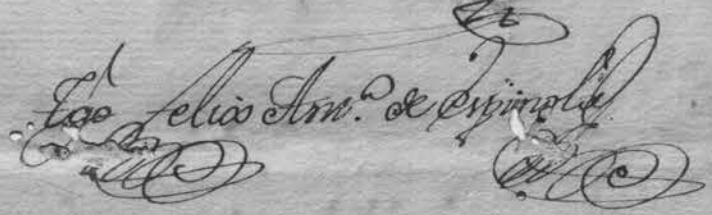 Tgo felix Antt.º de Espinola